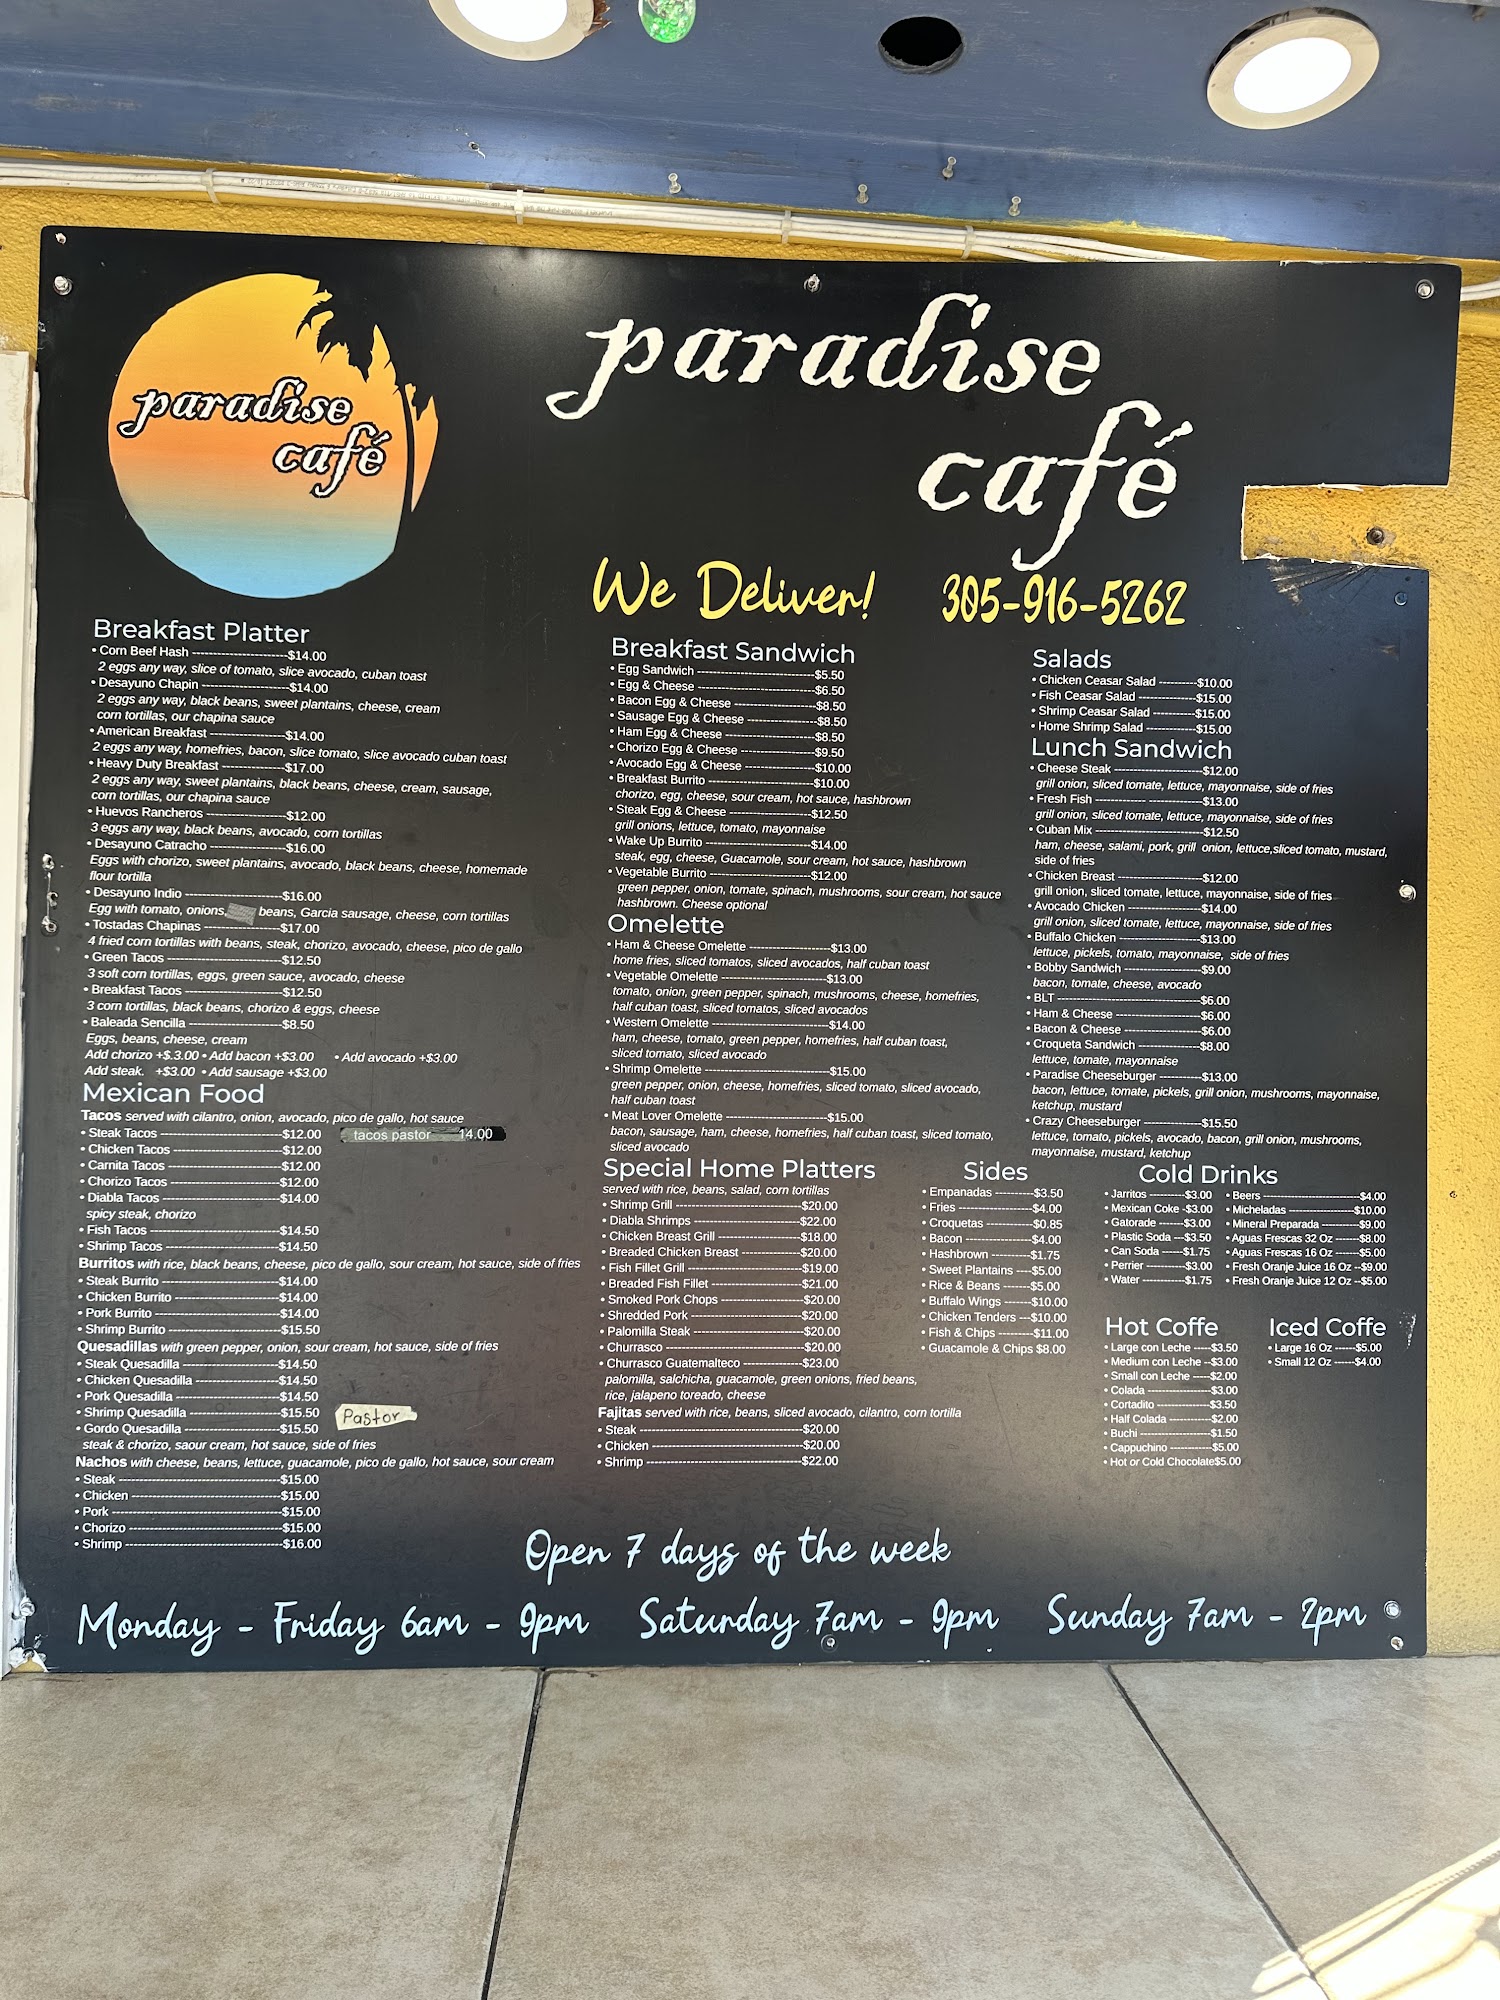 paradise
café
paradise
café
We Deliver! 305-916-5262
Breakfast Platter
• Corn Beef Hash -----------------------$14.00
2 eggs any way, slice of tomato, slice avocado, cuban toast
• Desayuno Chapin ---------------------$14.00
2 eggs any way, black beans, sweet plantains, cheese, cream
corn tortillas, our chapina sauce
• American Breakfast ------------------$14.00
2 eggs any way, homefries, bacon, slice tomato, slice avocado cuban toast
• Heavy Duty Breakfast ---------------$17.00
2 eggs any way, sweet plantains, black beans, cheese, cream, sausage,
corn tortillas, our chapina sauce
• Huevos Rancheros --------------------------$12.00
3 eggs any way, black beans, avocado, corn tortillas
• Desayuno Catracho -------------------------$16.00
Eggs with chorizo, sweet plantains, avocado, black beans, cheese, homemade
flour tortilla
• Desayuno Indio -------------------------------$16.00
Egg with tomato, onions, beans, Garcia sausage, cheese, corn tortillas
• Tostadas Chapinas --------------------------$17.00
4 fried corn tortillas with beans, steak, chorizo, avocado, cheese, pico de gallo
• Green Tacos ----------------------------------$12.50
3 soft corn tortillas, eggs, green sauce, avocado, cheese
• Breakfast Tacos ------------------------------$12.50
3 corn tortillas, black beans, chorizo & eggs, cheese
• Baleada Sencilla -----------------------$8.50
Eggs, beans, cheese, cream
Add chorizo +$.3.00 • Add bacon +$3.00 • Add avocado +$3.00
Add steak. +$3.00 • Add sausage +$3.00
Mexican Food
Tacos served with cilantro, onion, avocado, pico de gallo, hot sauce
• Steak Tacos -----------------------------$12.00 tacos pastor 14.00
• Chicken Tacos --------------------------$12.00
• Carnita Tacos ---------------------------$12.00
• Chorizo Tacos ---------------------------$12.00
• Diabla Tacos -----------------------------$14.00
spicy steak, chorizo
• Fish Tacos --------------------------------$14.50
• Shrimp Tacos ----------------------------$14.50
Burritos with rice, black beans, cheese, pico de gallo, sour cream, hot sauce, side of fries
• Steak Burrito -----------------------------$14.00
• Chicken Burrito --------------------------$14.00
• Pork Burrito -------------------------------$14.00
• Shrimp Burrito ---------------------------$15.50
Quesadillas with green pepper, onion, sour cream, hot sauce, side of fries
• Steak Quesadilla ------------------------$14.50
• Chicken Quesadilla ---------------------$14.50
• Pork Quesadilla --------------------------$14.50
• Shrimp Quesadilla -----------------------$15.50 Pastor
• Gordo Quesadilla ------------------------$15.50
steak & chorizo, saour cream, hot sauce, side of fries
Nachos with cheese, beans, lettuce, guacamole, pico de gallo, hot sauce, sour cream
• Steak ---------------------------------------$15.00
• Chicken ------------------------------------$15.00
• Pork -----------------------------------------$15.00
• Chorizo -------------------------------------$15.00
• Shrimp --------------------------------------$16.00
Breakfast Sandwich
• Egg Sandwich -----------------------------$5.50
• Egg & Cheese ----------------------------$6.50
• Bacon Egg & Cheese --------------------$8.50
• Sausage Egg & Cheese -----------------$8.50
• Ham Egg & Cheese ----------------------$8.50
• Chorizo Egg & Cheese ------------------$9.50
• Avocado Egg & Cheese -----------------$10.00
• Breakfast Burrito --------------------------$10.00
chorizo, egg, cheese, sour cream, hot sauce, hashbrown
• Steak Egg & Cheese ---------------------$12.50
grill onions, lettuce, tomato, mayonnaise
• Wake Up Burrito --------------------------$14.00
steak, egg, cheese, Guacamole, sour cream, hot sauce, hashbrown
• Vegetable Burrito --------------------------$12.00
green pepper, onion, tomate, spinach, mushrooms, sour cream, hot sauce
hashbrown. Cheese optional
Omelette
• Ham & Cheese Omelette --------------------$13.00
home fries, sliced tomatos, sliced avocados, half cuban toast
• Vegetable Omelette --------------------------$13.00
tomato, onion, green pepper, spinach, mushrooms, cheese, homefries,
half cuban toast, sliced tomatos, sliced avocados
• Western Omelette -----------------------------$14.00
ham, cheese, tomato, green pepper, homefries, half cuban toast,
sliced tomato, sliced avocado
• Shrimp Omelette -------------------------------$15.00
green pepper, onion, cheese, homefries, sliced tomato, sliced avocado,
half cuban toast
• Meat Lover Omelette -------------------------$15.00
bacon, sausage, ham, cheese, homefries, half cuban toast, sliced tomato,
sliced avocado
Special Home Platters
served with rice, beans, salad, corn tortillas
• Shrimp Grill --------------------------------$20.00
• Diabla Shrimps ---------------------------$22.00
• Chicken Breast Grill ---------------------$18.00
• Breaded Chicken Breast ---------------$20.00
• Fish Fillet Grill ----------------------------$19.00
• Breaded Fish Fillet -----------------------$21.00
• Smoked Pork Chops --------------------$20.00
• Shredded Pork ----------------------------$20.00
• Palomilla Steak ---------------------------$20.00
• Churrasco ----------------------------------$20.00
• Churrasco Guatemalteco ---------------$23.00
palomilla, salchicha, guacamole, green onions, fried beans,
rice, jalapeno toreado, cheese
Fajitas served with rice, beans, sliced avocado, cilantro, corn tortilla
• Steak ----------------------------------------$20.00
• Chicken -------------------------------------$20.00
• Shrimp --------------------------------------$22.00
Salads
• Chicken Ceasar Salad ----------$10.00
• Fish Ceasar Salad ---------------$15.00
• Shrimp Ceasar Salad -----------$15.00
• Home Shrimp Salad -------------$15.00
Lunch Sandwich
• Cheese Steak -------------------------$12.00
grill onion, sliced tomate, lettuce, mayonnaise, side of fries
• Fresh Fish ------------- ---------------$13.00
grill onion, sliced tomate, lettuce, mayonnaise, side of fries
• Cuban Mix ----------------------------$12.50
ham, cheese, salami, pork, grill onion, lettuce,sliced tomato, mustard,
side of fries
• Chicken Breast -----------------------$12.00
grill onion, sliced tomate, lettuce, mayonnaise, side of fries
• Avocado Chicken --------------------$14.00
grill onion, sliced tomate, lettuce, mayonnaise, side of fries
• Buffalo Chicken ----------------------$13.00
lettuce, pickels, tomato, mayonnaise, side of fries
• Bobby Sandwich --------------------$9.00
bacon, tomate, cheese, avocado
• BLT ------------------------------------$6.00
• Ham & Cheese ----------------------$6.00
• Bacon & Cheese --------------------$6.00
• Croqueta Sandwich ----------------$8.00
lettuce, tomate, mayonnaise
• Paradise Cheeseburger -----------$13.00
bacon, lettuce, tomate, pickels, grill onion, mushrooms, mayonnaise,
ketchup, mustard
• Crazy Cheeseburger ---------------$15.50
lettuce, tomato, pickels, avocado, bacon, grill onion, mushrooms,
mayonnaise, mustard, ketchup
Sides
• Empanadas ----------$3.50
• Fries -------------------$4.00
• Croquetas ------------$0.85
• Bacon -----------------$4.00
• Hashbrown -----------$1.75
• Sweet Plantains ----$5.00
• Rice & Beans -------$5.00
• Buffalo Wings -------$10.00
• Chicken Tenders ---$10.00
• Fish & Chips ---------$11.00
• Guacamole & Chips $8.00
Cold Drinks
• Jarritos ----------$3.00
• Mexican Coke -$3.00
• Gatorade -------$3.00
• Plastic Soda ---$3.50
• Can Soda ------$1.75
• Perrier -----------$3.00
• Water ------------$1.75
• Beers ----------------------------$4.00
• Micheladas -------------------$10.00
• Mineral Preparada -----------$9.00
• Aguas Frescas 32 Oz -------$8.00
• Aguas Frescas 16 Oz -------$5.00
• Fresh Oranje Juice 16 Oz --$9.00
• Fresh Oranje Juice 12 Oz --$5.00
Hot Coffe
• Large con Leche -----$3.50
• Medium con Leche --$3.00
• Small con Leche -----$2.00
• Colada -----------------$3.00
• Cortadito ---------------$3.50
• Half Colada ------------$2.00
• Buchi --------------------$1.50
• Cappuchino ------------$5.00
• Hot or Cold Chocolate$5.00
Iced Coffe
• Large 16 Oz ------$5.00
• Small 12 Oz ------$4.00
Open 7 days of the week
Monday - Friday 6am - 9pm Saturday 7am - 9pm Sunday 7am - 2pm